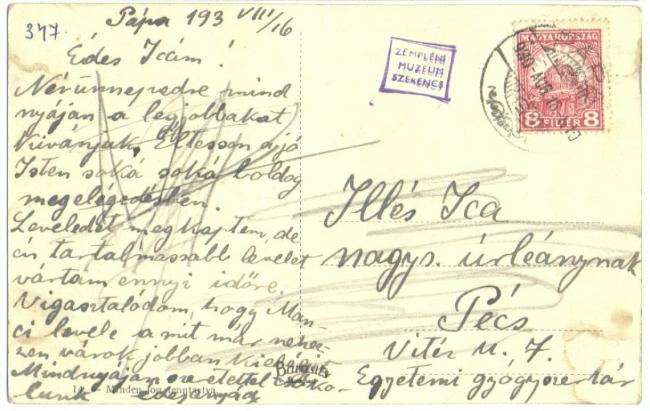 347.
Pápa 193 VIII/16
Édes Icám!
Névünnepedre mind
nyáján a legjobbakat
kívánjuk, Éltesson a jó
Isten soká soká boldog
megelégedésben.
Leveledet megkaptam, de
én tartalmassabb levelet
vártam ennyi időre.
Vigasztalodom, hogy Man-
ci levele a mit már nehe-
zen várok jobban kielégít
Mindnyájan szeretettel csóko-
lunk
Minden jog fenntartva.
Barasits
ZEMPLÉNI
MÚZEUM
SZERENCS
MAGYARORSZÁG
8 FILLÉR 8
Illés Ica
nagys. úrleánynak
Pécs
Vitéz u. 7.
Egyetemi gyógyszertár